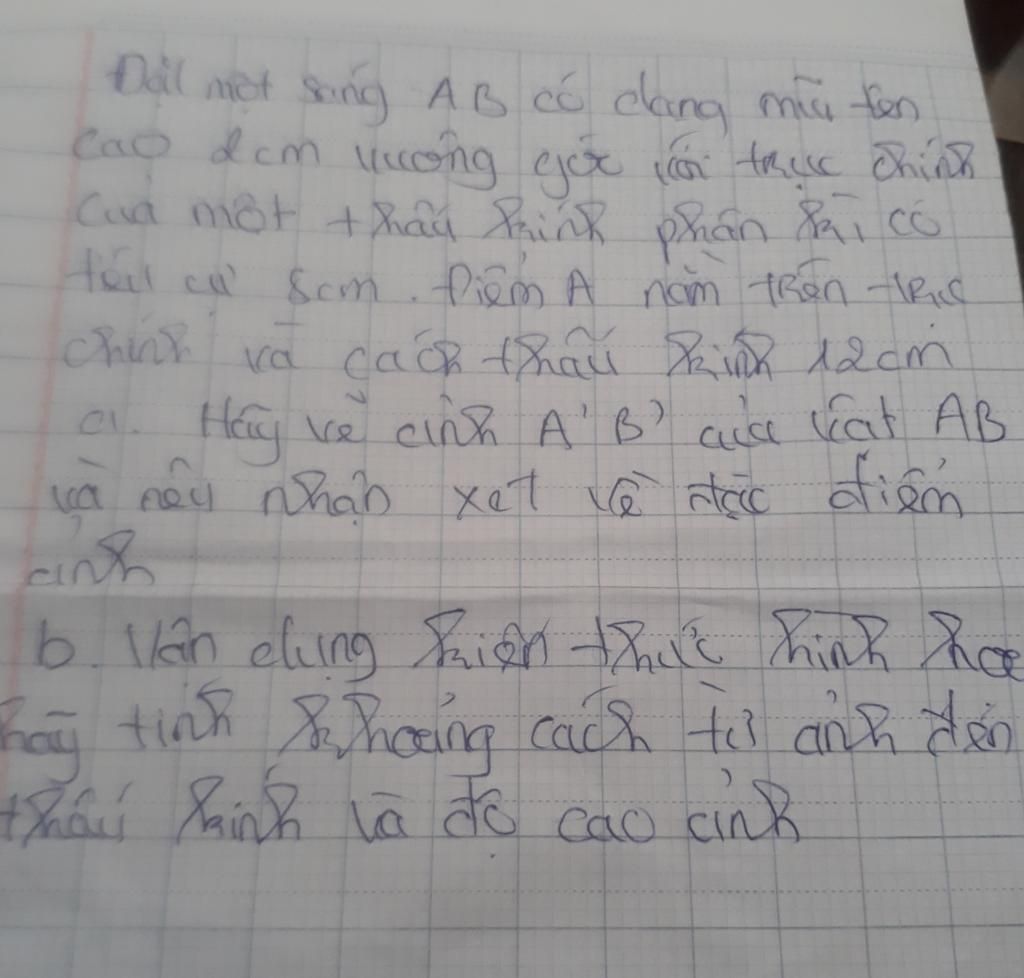 Đặt một sáng AB có dạng mũi tên
cao 2cm vuông góc với trục chính
của một thấu kính phân kì có
tiêu cự 8cm. Điểm A nằm trên trục
chính và cách thấu kính 12cm
a. Hãy vẽ ảnh A'B' của vật AB
và nêu nhận xét về đặc điểm
ảnh
b. Vận dụng kiến thức hình học
hãy tính khoảng cách từ ảnh đến
thấu kính và độ cao ảnh